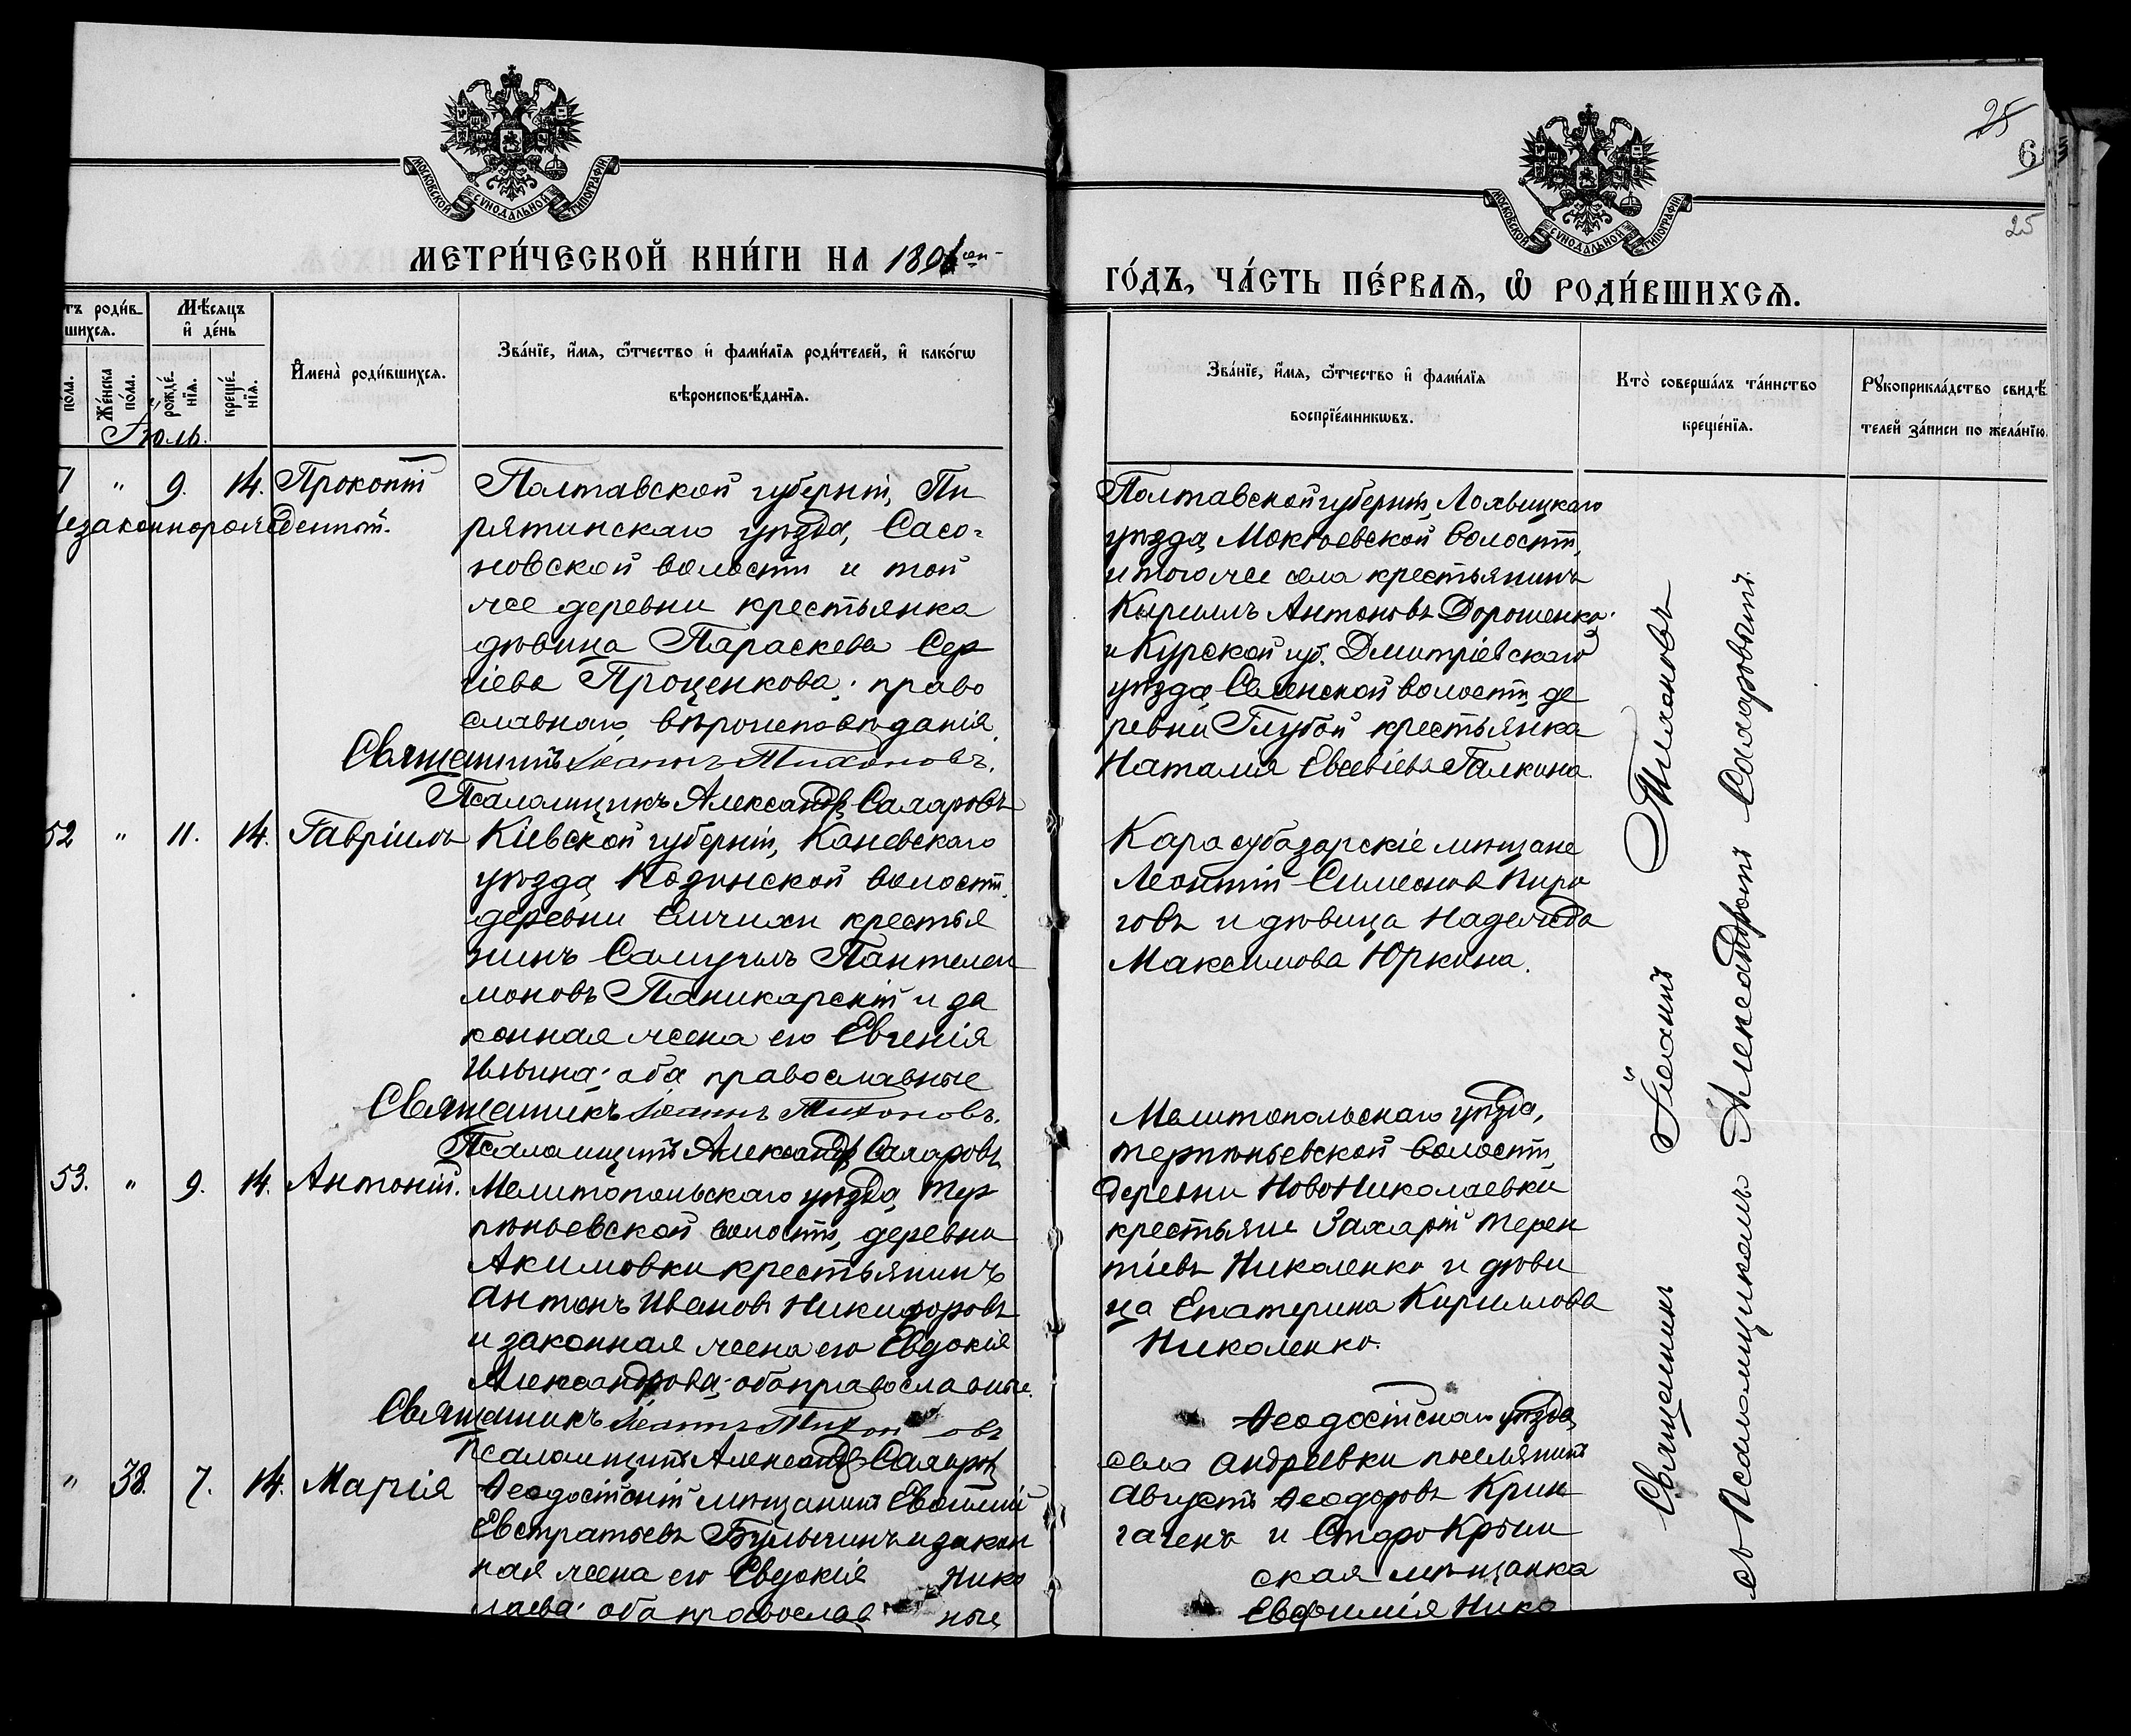 25
6
25
МОСКОВСКОЙ СѴНОДАЛЬНОЙ ТИПОГРАФІИ
МОСКОВСКОЙ СѴНОДАЛЬНОЙ ТИПОГРАФІИ
МЕТРИ́ЧЕСКОЙ КНИ́ГИ НА 189
ГО́ДЪ, ЧА́СТЬ ПЕ́РВАѦ, Ѡ РОДИ́ВШИХСѦ.
тъ роди́в-
шихсѧ.
Мѣ́сѧцъ
и҆ де́нь
по́ла.
Же́нска по́ла.
рожде́-нїѧ.
креще́-нїѧ.
И҆мена̀ роди́вшихсѧ.
Зва́нїе, и҆́мѧ, ѻ҆́тчество и҆ фами́лїѧ роди́телей, и҆ како́гѡ
вѣроисповѣ́данїѧ.
Зва́нїе, и҆́мѧ, ѻ҆́тчество и҆ фами́лїѧ
воспрїе́мникѡвъ.
Кто̀ соверша́лъ та́инство
креще́нїѧ.
Рꙋкоприкла́дство свидѣ́-
телей за́писи по жела́нїю.
Іюль.
1 " 9. 14. Прокопій
Незаконнорожденный.
Полтавской губерніи, Пи
рятинскаго уѣзда, Сасо-
новской волости и той
же деревни крестьянка
дѣвица Параскева Сер
гіева Проценкова; право
славнаго вѣроисповѣданія.
Священникъ Іоаннъ Тихоновъ.
Псаломщикъ Александръ Сахаровъ
Полтавской губерніи, Лохвицкаго
уѣзда, Волости,
и того же села крестьянинъ
Кириллъ Антоновъ Дорошенко
и Курской губ. Дмитріевскаго
уѣзда, волости, де
ревни крестьянка
Наталія Евсевіева Галкина.
52 " 11. 14. Гавріилъ
Кіевской губерніи, Каневскаго
уѣзда, Козинской волости,
деревни крестья
нинъ Самуилъ Пантелеи
моновъ Паникарскій и за
конная жена его Евгенія
Ильина; оба православные
Священникъ Іоаннъ Тихоновъ.
Псаломщикъ Александръ Сахаровъ
Карасубазарскіе мѣщане
Леонтій Симеоновъ Пиро
говъ и дѣвица Надежда
Максимова Юркина.
53. " 9. 14. Антоній.
Мелитопольскаго уѣзда, Тер
пѣньевской волости, деревни
Акимовки крестьянинъ
Антонъ Ивановъ Никифоровъ
и законная жена его Евдокія
Александрова; оба православные.
Священникъ Іоаннъ Тихоновъ
Псаломщикъ Александръ Сахаровъ
Мелитопольскаго уѣзда,
Терпѣньевской Волости,
деревни НовоНиколаевки
крестьяне Захарій Терен
тіевъ Николенко и дѣви
ца Екатерина Кириллова
Николенко.
" 38. 7. 14. Марія
Ѳеодосійскій мѣщанинъ Евѳимій
Евстратьевъ Булыгинъ и закон
ная жена его Евдокія Нико
лаева; оба православные
Ѳеодосійскаго уѣзда,
села Андреевки поселянинъ
Августъ Ѳеодоровъ
и СтароКрым
ская мѣщанка
Евфимія Нико
Священникъ Іоаннъ Тихоновъ
съ Псаломщикомъ Александромъ Сахаровымъ.